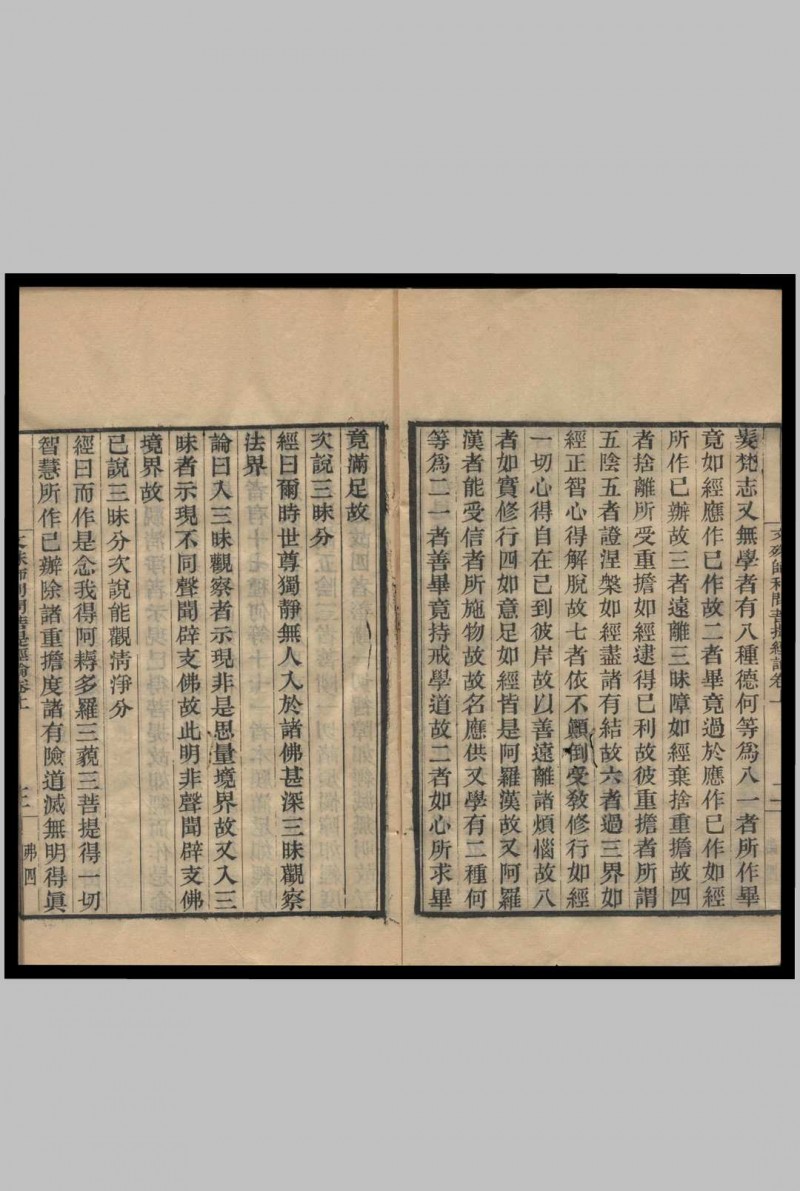 髮梵志又無學者有八種德何等爲八一者所作畢
竟如經應作已作故二者畢竟過於應作已作如經
所作已辦故三者遠離三昧障如經棄捨重擔故四
者捨離所受重擔如經逮得已利故彼重擔者所謂
五陰五者證涅槃如經盡諸有結故六者過三界如
經正智心得解脫故七者依不顚倒受敎修行如經
一切心得自在已到彼岸故以善遠離諸煩惱故八
者如實修行四如意足如經皆是阿羅漢故又阿羅
漢者能受信者所施物故故名應供又學有二種何
等爲二一者善畢竟持戒學道故二者如心所求畢
竟滿足故
次說三昧分
經曰爾時世尊獨靜無人入於諸佛甚深三昧觀察
法界
論曰入三昧觀察者示現非是思量境界故又入三
昧者示現不同聲聞辟支佛故此明非聲聞辟支佛
境界故
已說三昧分次說能觀淸淨分
經曰而作是念我得阿耨多羅三藐三菩提得一切
智慧所作已辦除諸重擔度諸有險道滅無明得眞
弗四